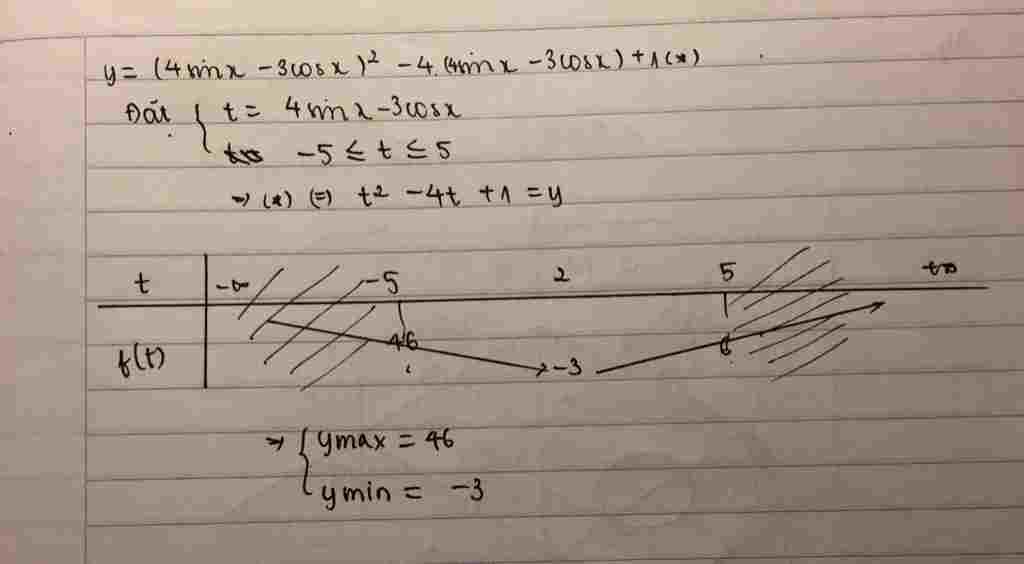 y = (4sinx - 3cosx)² - 4.(4sinx - 3cosx) + 1 (*)
Đặt { t = 4sinx - 3cosx
-5 ≤ t ≤ 5
→ (*) (=) t² - 4t + 1 = y
t -∞ -5 2 5 +∞
f(t) 46 -3 6
→ { ymax = 46
ymin = -3